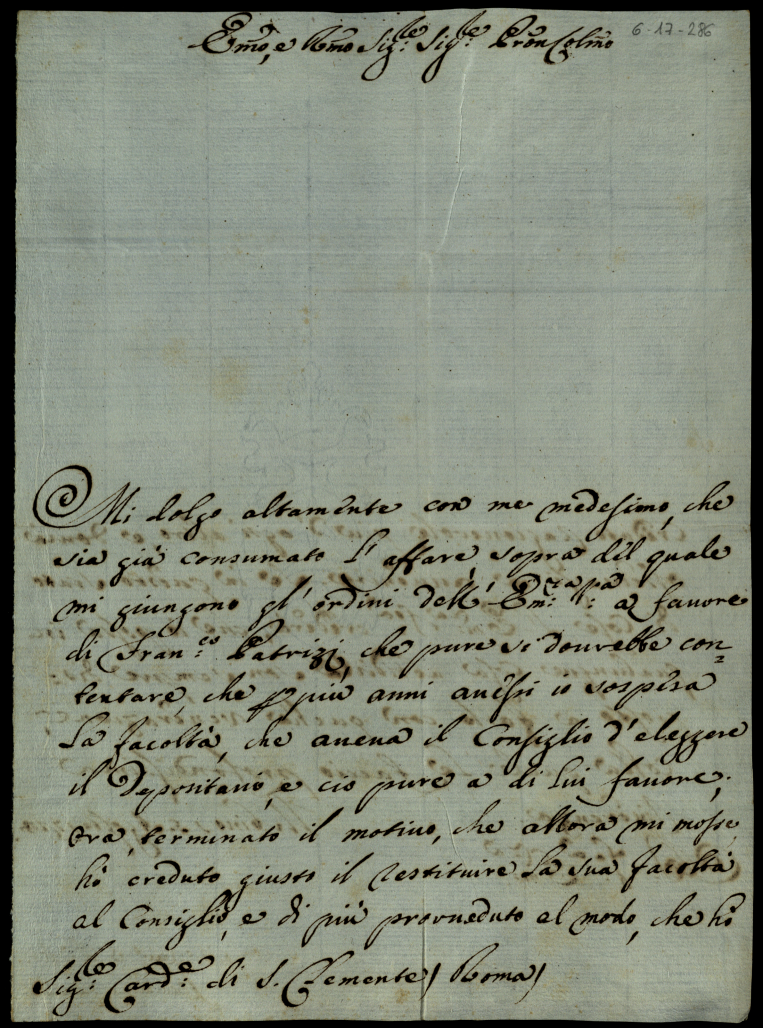 Em̃o, e Rm̃o Sig.re Sig.re Pron̄ Colm̃o
6-17-286
Mi dolgo altamente con me medesimo, che
sia già consumato l'affare, sopra del quale
mi giungono gl'ordini dell'Em.za V.a a fauore
di Fran.co Patrizi, che pure si dourebbe con=
tentare, che p più anni auessi io sospesa
la facoltà, che aueua il Consiglio d'eleggere
il Depositario, e cio pure a di lui fauore;
ora, terminato il motiuo, che allora mi mosse,
hò creduto giusto il restituire la sua facoltà
al Consiglio, e di più proueduto al modo, che hò
Sig.re Card.e di S. Clemente / Roma /